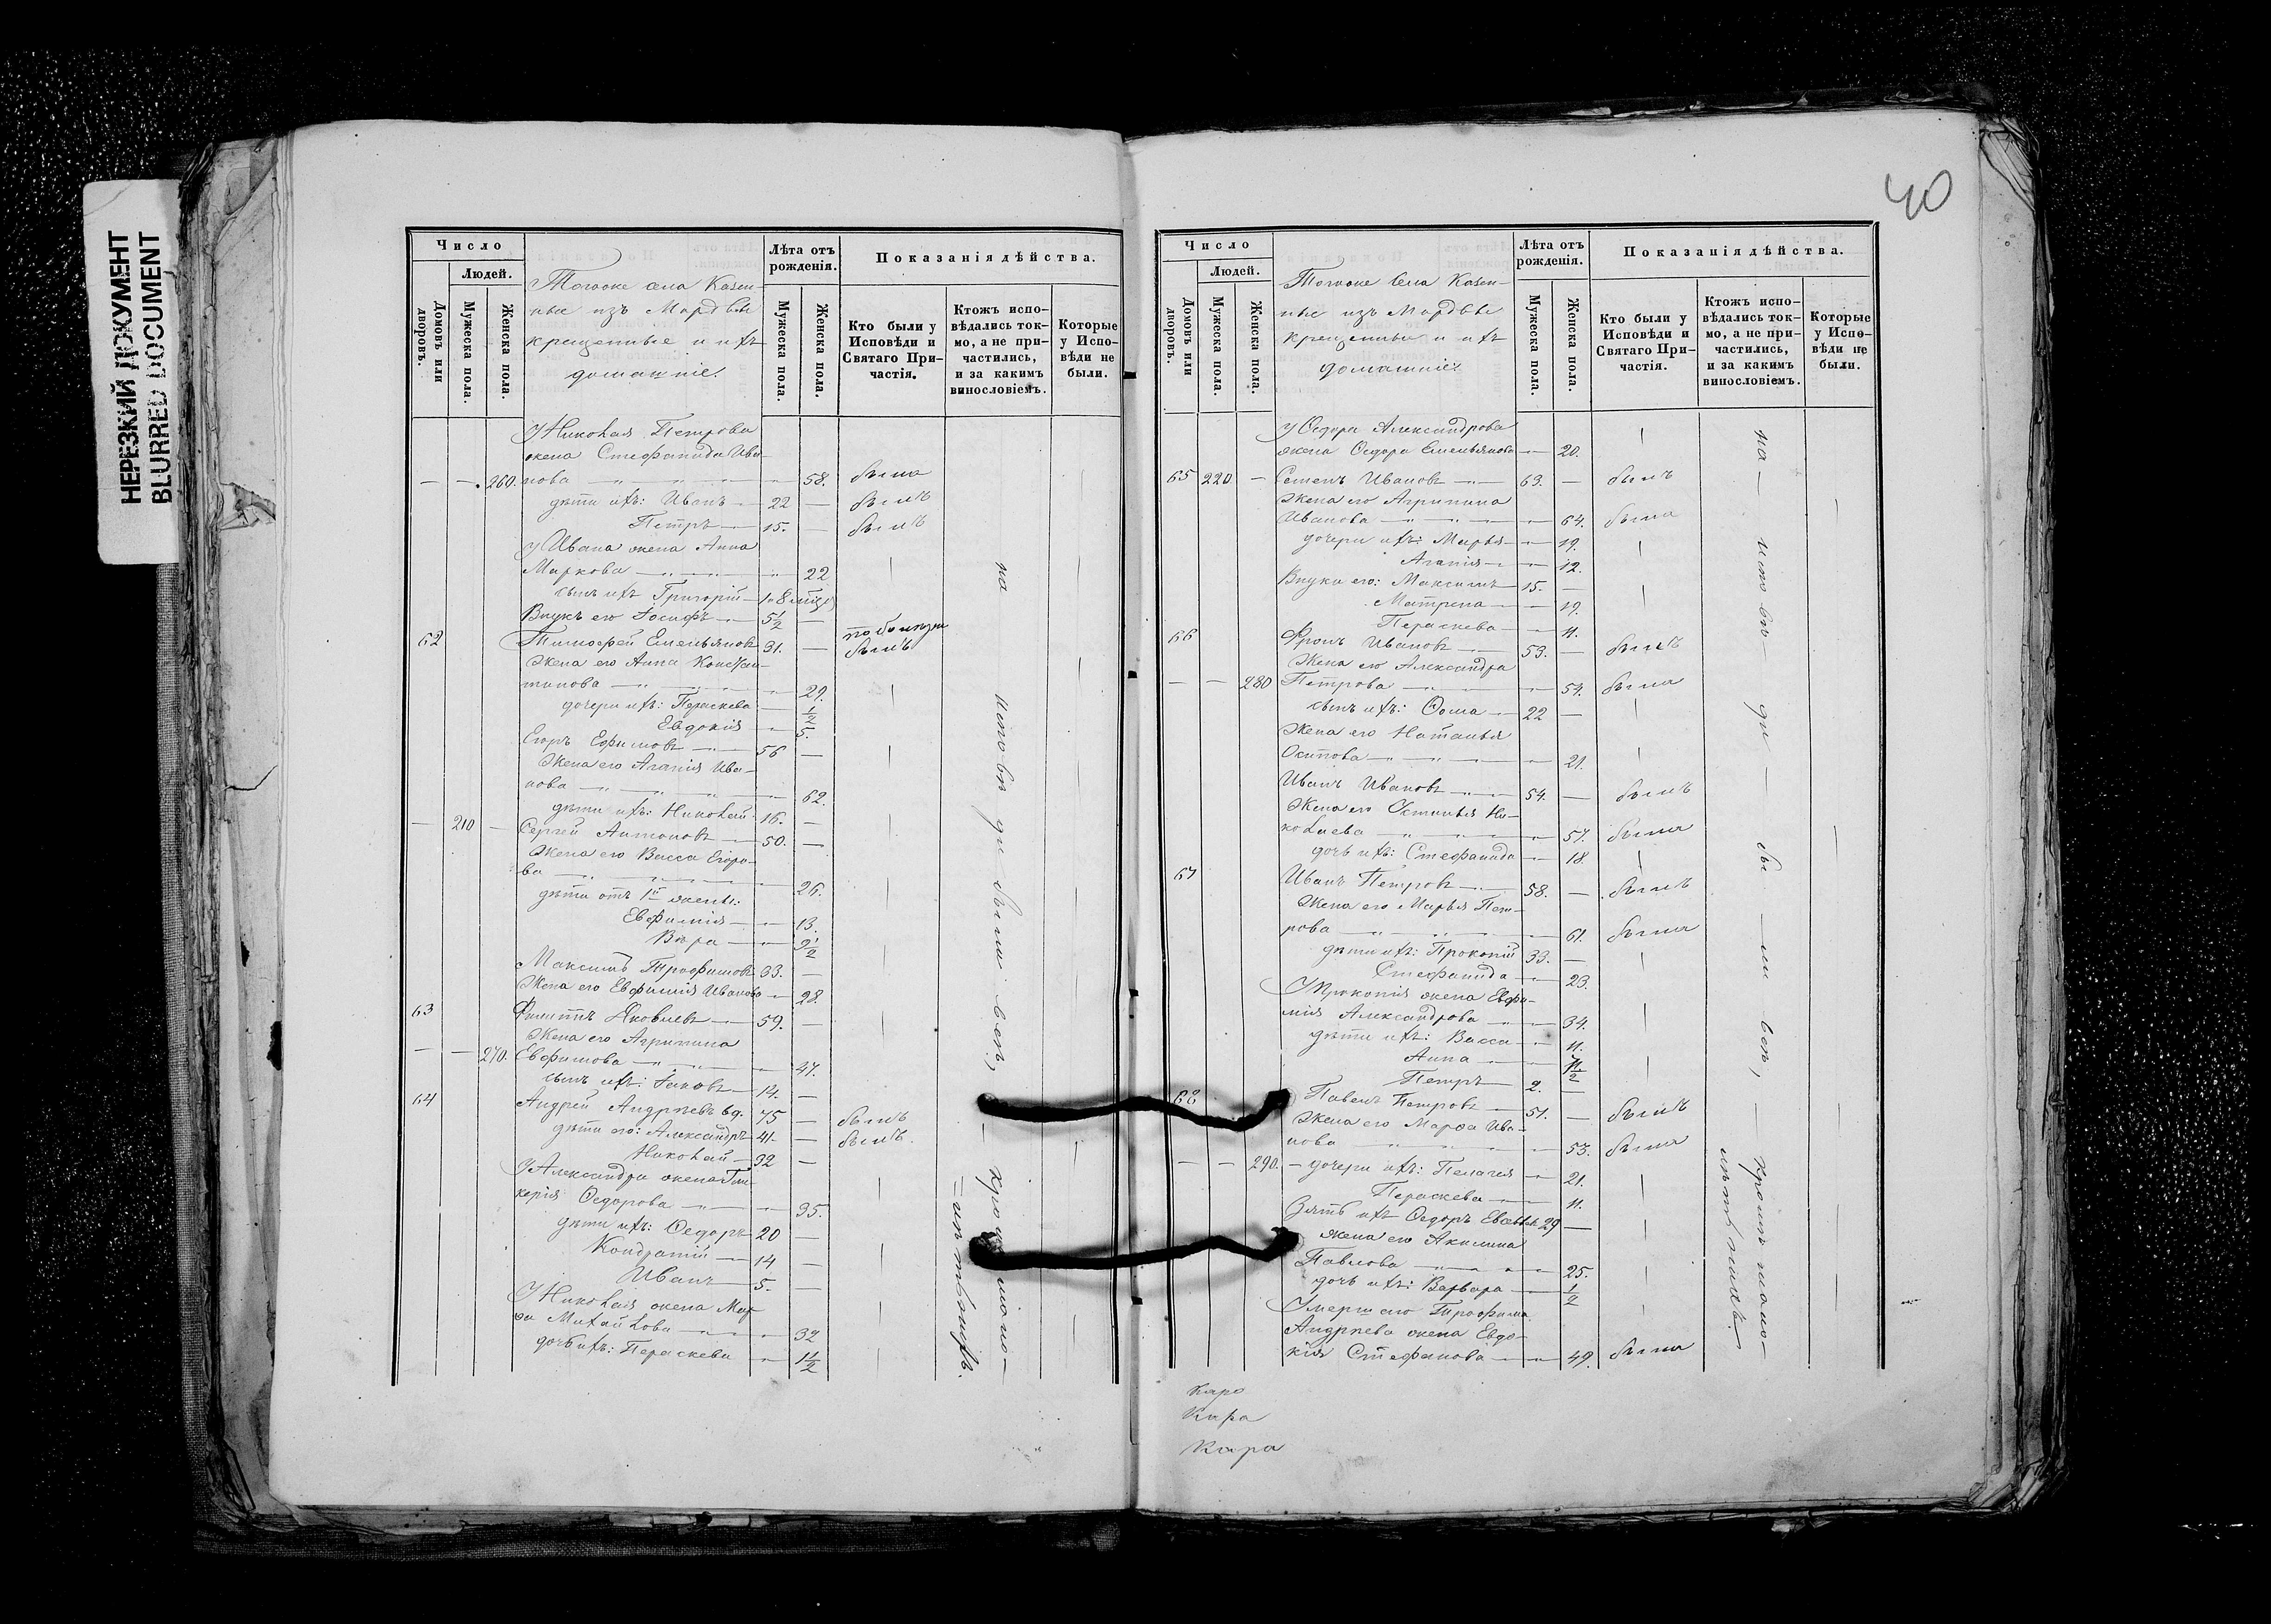 НЕРЕЗКИЙ ДОКУМЕНТ
BLURRED DOCUMENT
Число
Людей.
Домовъ или дворовъ.
Мужеска пола.
Женска пола.
Тогоже села Казен-
ные изъ Мордвы
крещенные и ихъ
домашніе.
Лѣта отъ рожденія.
Мужеска пола.
Женска пола.
Показанія дѣйства.
Кто были у Исповѣди и Святаго При-частія.
Ктожъ испо-вѣдались ток-мо, а не при-частились, и за какимъ винословіемъ.
Которые у Испо-вѣди не были.
У Николая Петрова
жена Стефанида Ива-
260. нова 58. была
дѣти ихъ: Иванъ 22 — былъ
Петръ 15. — былъ
У Ивана жена Анна
Маркова 22
сынъ ихъ Григорій
Внукъ его Іосифъ 5½ —
62 Тимофей Емельяновъ 31. — былъ
Жена его Анна Констан-
тинова 29.
дочери ихъ: Параскева ½
Евдокія 5.
Егоръ Ефимовъ 56 —
Жена его Агапія Ива-
нова 62.
дѣти ихъ: Николай 16. —
— 210 — Сергей Антоновъ 50. —
Жена его Васса Егоро-
ва 26.
дѣти отъ 1й жены:
Евфимія 13.
Вѣра 9½
Максимъ Трофимовъ 33. —
Жена его Евфимія Иванова 28.
63 Филиппъ Яковлевъ 59. —
Жена его Агрипина
— — 270. Евфимова 47.
сынъ ихъ: Іаковъ 14. —
64 Андрей Андреевъ вд. 75 — былъ
дѣти его: Александръ 41. — былъ.
Николай 32 —
У Александра жена Гли-
керія Ѳедорова 35.
дѣти ихъ: Ѳедоръ 20 —
Кондратій 14 —
Иванъ 5. —
У Николая жена Мар-
ѳа Михайлова 32
дочь ихъ: Параскева 1½
на исповѣди были всѣ,
— кромѣ мало-
=лѣтнихъ.
40
Число
Людей.
Домовъ или дворовъ.
Мужеска пола.
Женска пола.
Тогоже села Казен-
ные изъ Мордвы
крещенные и ихъ
домашніе
Лѣта отъ рожденія.
Мужеска пола.
Женска пола.
Показанія дѣйства.
Кто были у Исповѣди и Святаго При-частія.
Ктожъ испо-вѣдались ток-мо, а не при-частились, и за какимъ винословіемъ.
Которые у Испо-вѣди не были.
У Ѳедора Александрова
жена Ѳедора Емельянова 20.
65 220 — Семенъ Ивановъ 63. — былъ
Жена его Агрипина
Иванова 64. была
дочери ихъ: Марья 19.
Агапія 12.
Внуки его: Максимъ 15. —
Матрена 19.
Параскева 11.
66 Фролъ Ивановъ 53. — былъ
Жена его Александра
— — 280 Петрова 54. была
сынъ ихъ: Ѳома 22 —
Жена его Наталья
Осипова 21.
Иванъ Ивановъ 54. — былъ
Жена его Устинья Ни-
колаева 57. была
дочь ихъ: Стефанида 18
67 Иванъ Петровъ 58. — былъ
Жена его Марья Пет-
рова 61. была
дѣти ихъ: Прокопій 33. —
Стефанида 23.
У Прокопія жена Евфи-
мія Александрова 34.
дѣти ихъ: Васса 11.
Анна
Петръ 2. —
68 Павелъ Петровъ 51. — былъ
Жена его Марѳа Ива-
нова 53. была
— — 290. — дочери ихъ: Пелагея 21.
Параскева 11.
Зять ихъ Ѳедоръ 29 —
жена его Акилина
Павлова 25.
дочь ихъ: Варвара ½
Умершаго Трофима
Андреева жена Евдо-
кія Стефанова 49. была
на — исповѣ — ди — бы — ли всѣ, — кромѣ мало-
лѣтнихъ.
Каро
Кара
Кара